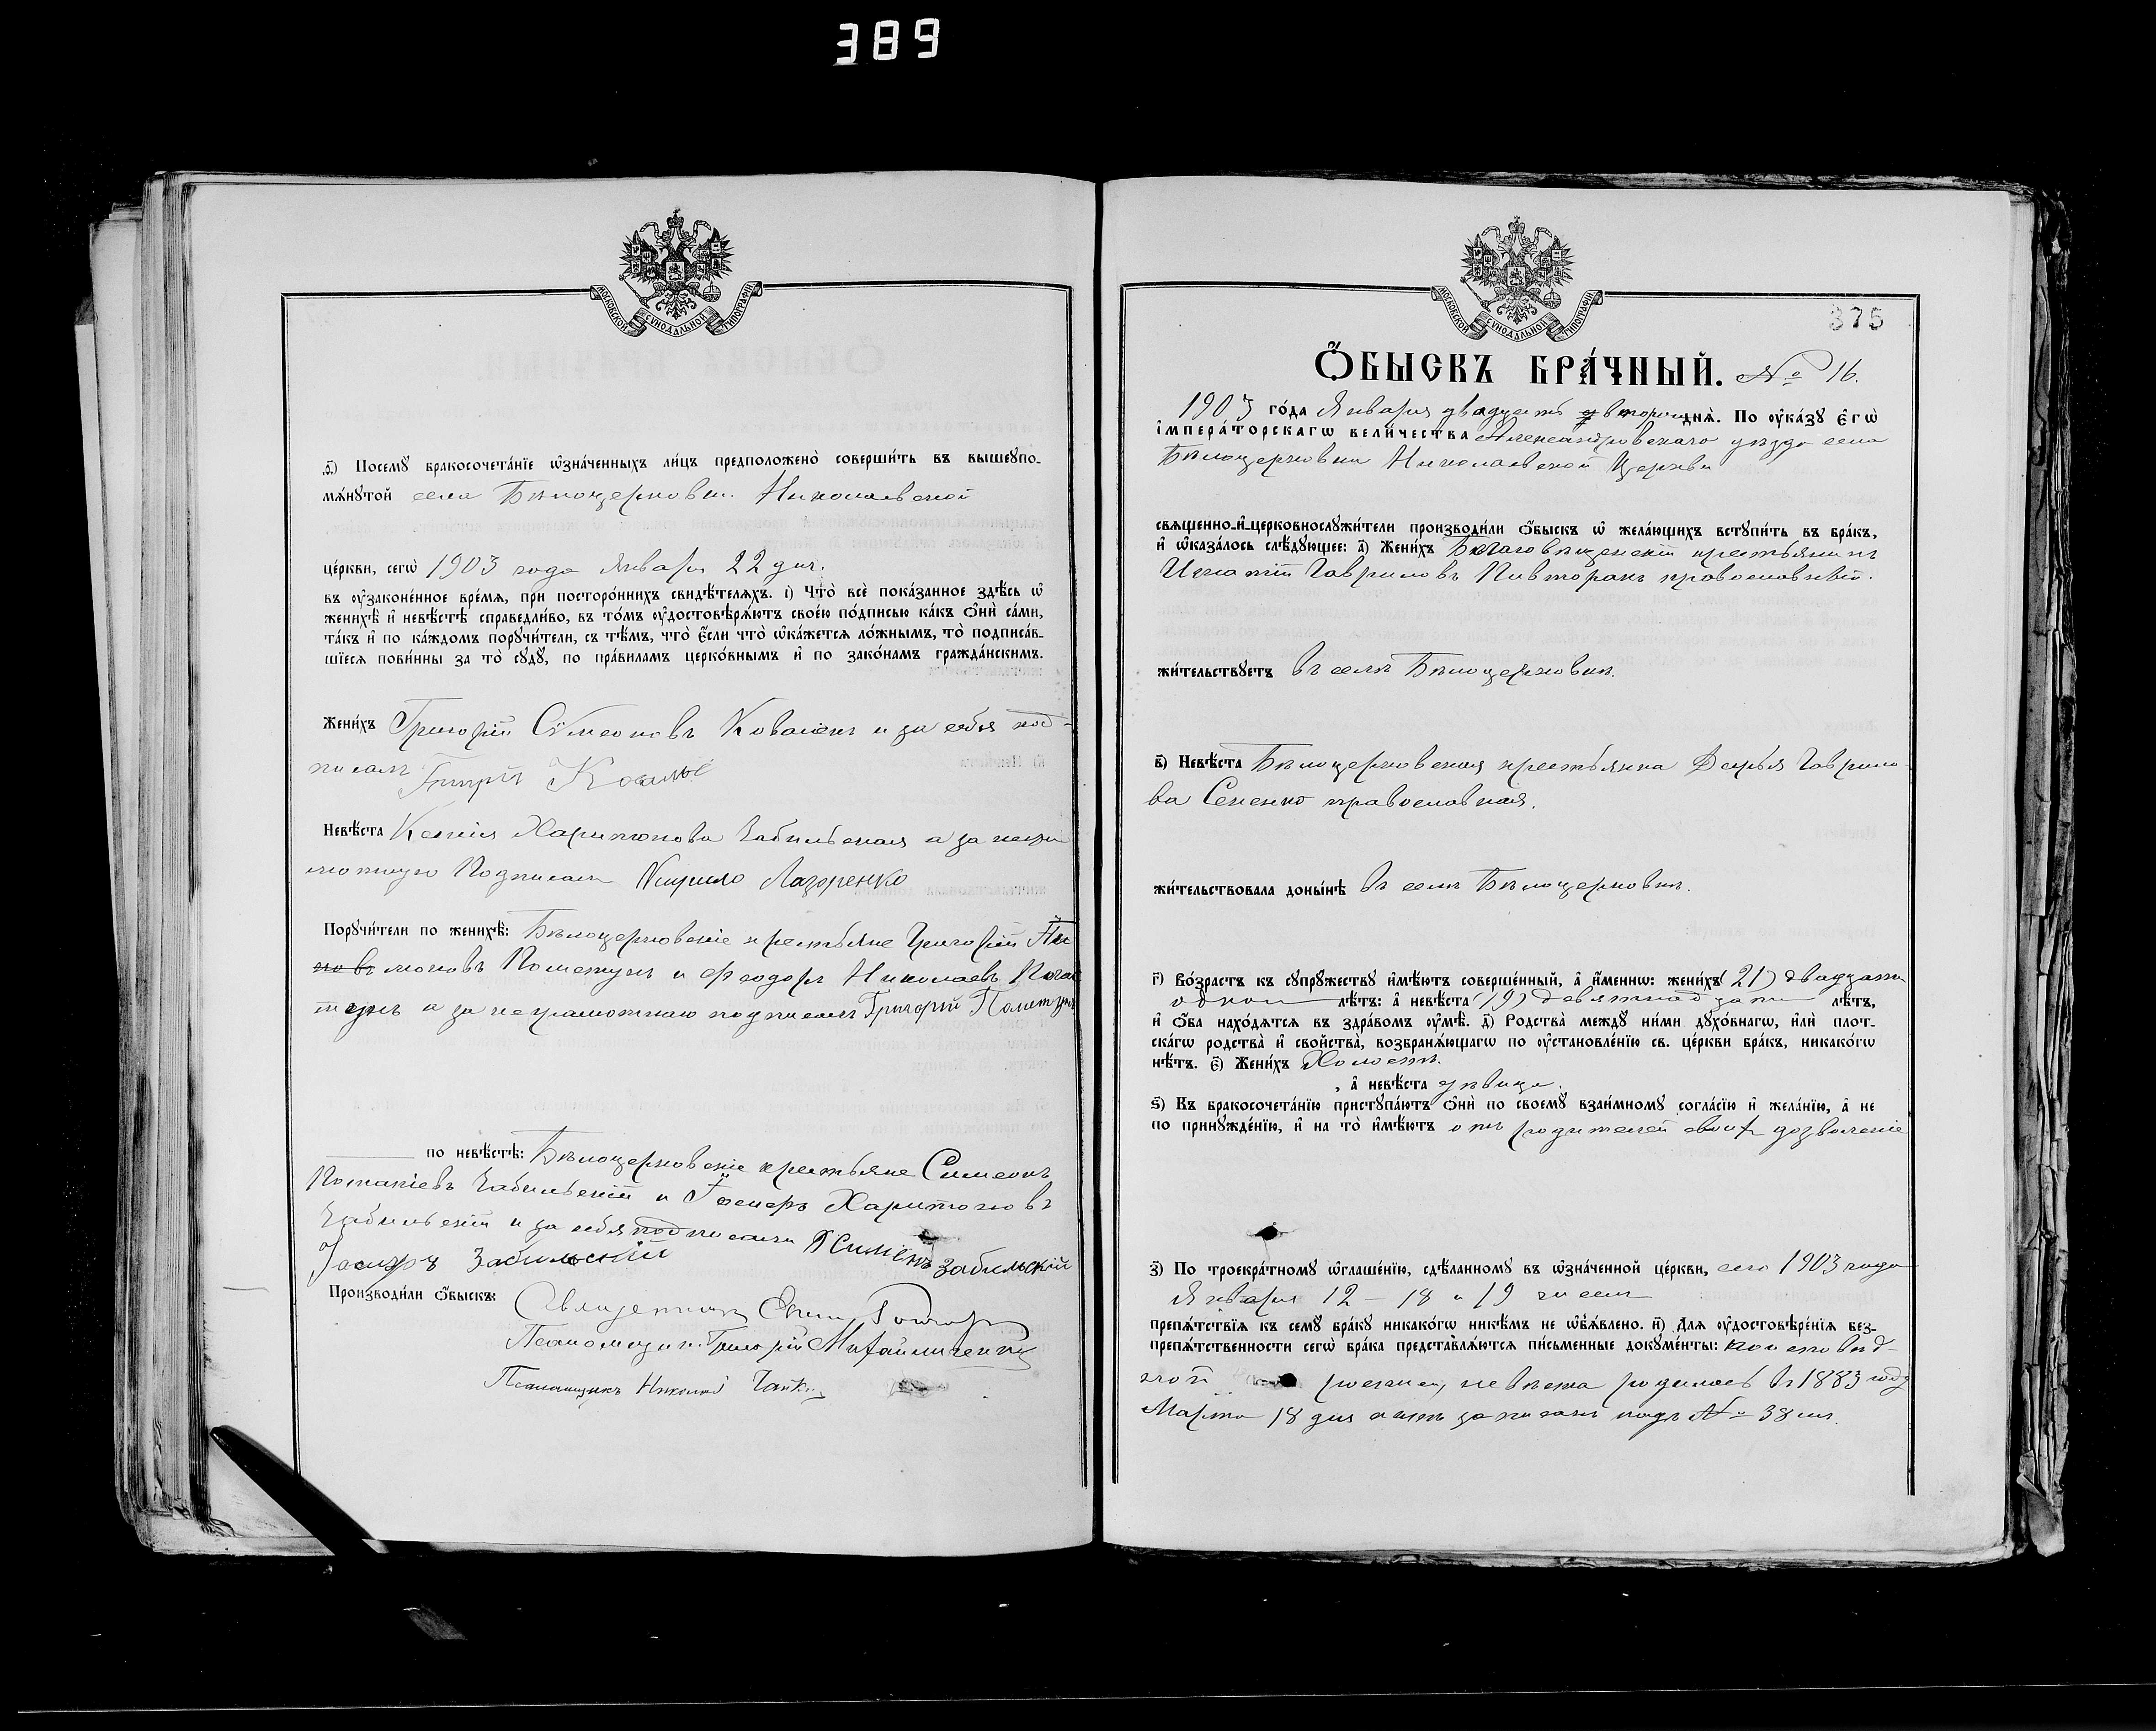 389
МОСКОВСКОЙ СѴНОДАЛЬНОЙ ТИПОГРАФІИ
ѳ҃) Посемꙋ бракосочета́нїе ѡ҆зна́ченныхъ ли́цъ предположено̀ соверши́ть въ вышеꙋпо-
мѧ́нꙋтой села Бѣлоцерковки Николаевской
це́ркви, сегѡ̀ 1903 года Января 22 дня.
въ ᲂу҆зако́ненное вре́мѧ, при посторо́ннихъ свидѣ́телѧхъ. і҃) Что̀ всѐ пока́занное здѣ́сь ѡ҆
женихѣ̀ и҆ невѣ́стѣ справедли́во, въ то́мъ ᲂу҆достовѣрѧ́ютъ свое́ю по́дписью ка́къ ѻ҆нѝ са́ми,
та́къ и҆ по ка́ждомъ порꙋчи́тели, съ тѣ́мъ, что̀ є҆́сли что̀ ѡ҆ка́жетсѧ ло́жнымъ, то̀ подписа́в-
шїесѧ пови́нны за то̀ сꙋдꙋ̀, по пра́виламъ церко́внымъ и҆ по зако́намъ гражда́нскимъ.
Жени́хъ Григорій Сѵмеоновъ Ковалёвъ и за себя под-
писалъ
Невѣ́ста Ксенія Харитонова Забильская а за негра
мотную Подписалъ Кирило Лазоренко
Порꙋчи́тели по женихѣ̀: Бѣлоцерковскіе крестьяне Григорій
Полетунъ и Ѳеодоръ Николаевъ
а за неграмотнаго подписалъ Григорій Полетунъ
по невѣ́стѣ: Бѣлоцерковскіе крестьяне Симеонъ
Потапіевъ Забильскій и Харитоновъ
Забильскій и за себя подписали Забильскій
Забильскій
Производи́ли ѻ҆́быскъ: Священникъ
Псаломщикъ Григорій Михайличенко
Псаломщикъ Николай
МОСКОВСКОЙ СѴНОДАЛЬНОЙ ТИПОГРАФІИ
375
Ѻ҆́БЫСКЪ БРА́ЧНЫЙ. № 16.
1903 го́да Января двадцать втораго днѧ̀. По ᲂу҆ка́зꙋ є҆гѡ̀
і҆мпера́торскагѡ вели́чества Александровскаго уѣзда села
Бѣлоцерковки Николаевской Церкви
свѧщенно-и҆-церковнослꙋжи́тели производи́ли ѻ҆́быскъ ѡ҆ жела́ющихъ встꙋпи́ть въ бра́къ,
и҆ ѡ҆каза́лось слѣ́дꙋющее: а҃) Жени́хъ Благовѣщенскій крестьянинъ
Игнатій Гавриловъ Пивторакъ православный.
жи́тельствꙋетъ въ селѣ Бѣлоцерковкѣ.
в҃) Невѣ́ста Бѣлоцерковская крестьянка Дарья Гаврило-
ва Сененко православная.
жи́тельствовала доны́нѣ въ селѣ Бѣлоцерковкѣ.
г҃) Во́зрастъ къ сꙋпрꙋ́жествꙋ и҆мѣ́ютъ соверше́нный, а҆ и҆́меннѡ: жени́хъ (21) двадцати
одного лѣ́тъ: а҆ невѣ́ста (19) девятнадцати лѣ́тъ,
и҆ ѻ҆́ба нахо́дѧтсѧ въ здра́вомъ ᲂу҆мѣ̀. д҃) Родства̀ междꙋ̀ ни́ми дꙋхо́внагѡ, и҆лѝ плот-
ска́гѡ родства̀ и҆ сво́йства, возбранѧ́ющагѡ по ᲂу҆становле́нїю св. це́ркви бра́къ, никако́гѡ
нѣ́тъ. є҃) Жени́хъ Холостъ
, а҆ невѣ́ста дѣвица.
ѕ҃) Къ бракосочета́нїю пристꙋпа́ютъ ѻ҆нѝ по своемꙋ̀ взаи́мномꙋ согла́сїю и҆ жела́нїю, а҆ не
по принꙋжде́нїю, и҆ на то̀ и҆мѣ́ютъ отъ родителей своихъ дозволеніе
з҃) По троекра́тномꙋ ѡ҆глаше́нїю, сдѣ́ланномꙋ въ ѡ҆зна́ченной це́ркви, сего 1903 года
Января 12 – 18 и 19 чиселъ
препѧ́тствїѧ къ семꙋ̀ бра́кꙋ никако́гѡ никѣ́мъ не ѡ҆б̾ѧ́влено. и҃) Для ᲂу҆достовѣре́нїѧ без-
препѧ́тственности сегѡ̀ бра́ка представлѧ́ютсѧ пи́сьменные докꙋме́нты: исповѣд-
ной росписи, невѣста родилась въ 1883 году
Марта 18 дня актъ записанъ подъ № 38